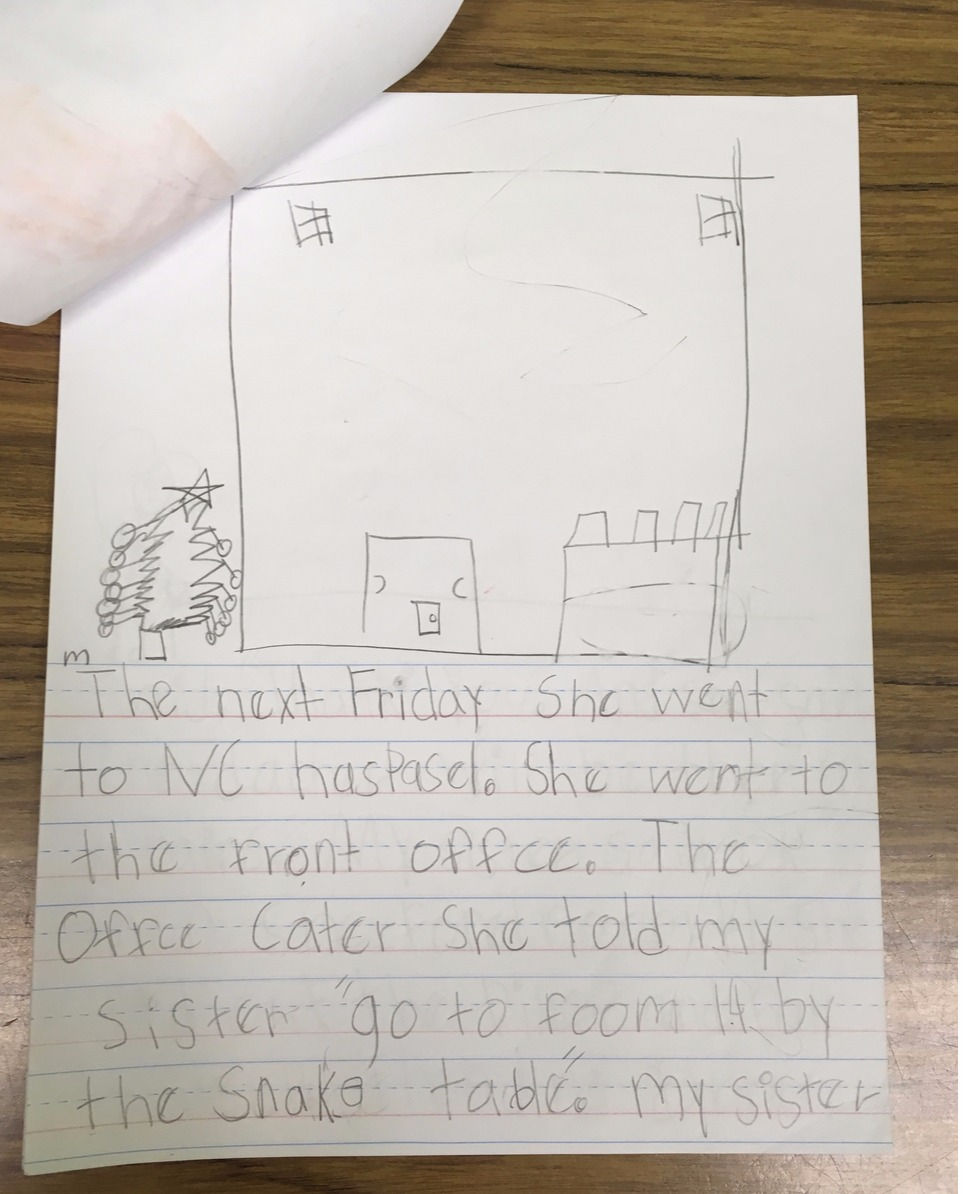 m
The next Friday She went
to NC haspasel. She went to
the front offce. The
Offce Cater She told my
sister "go to room 14 by
the Snake table". my sister